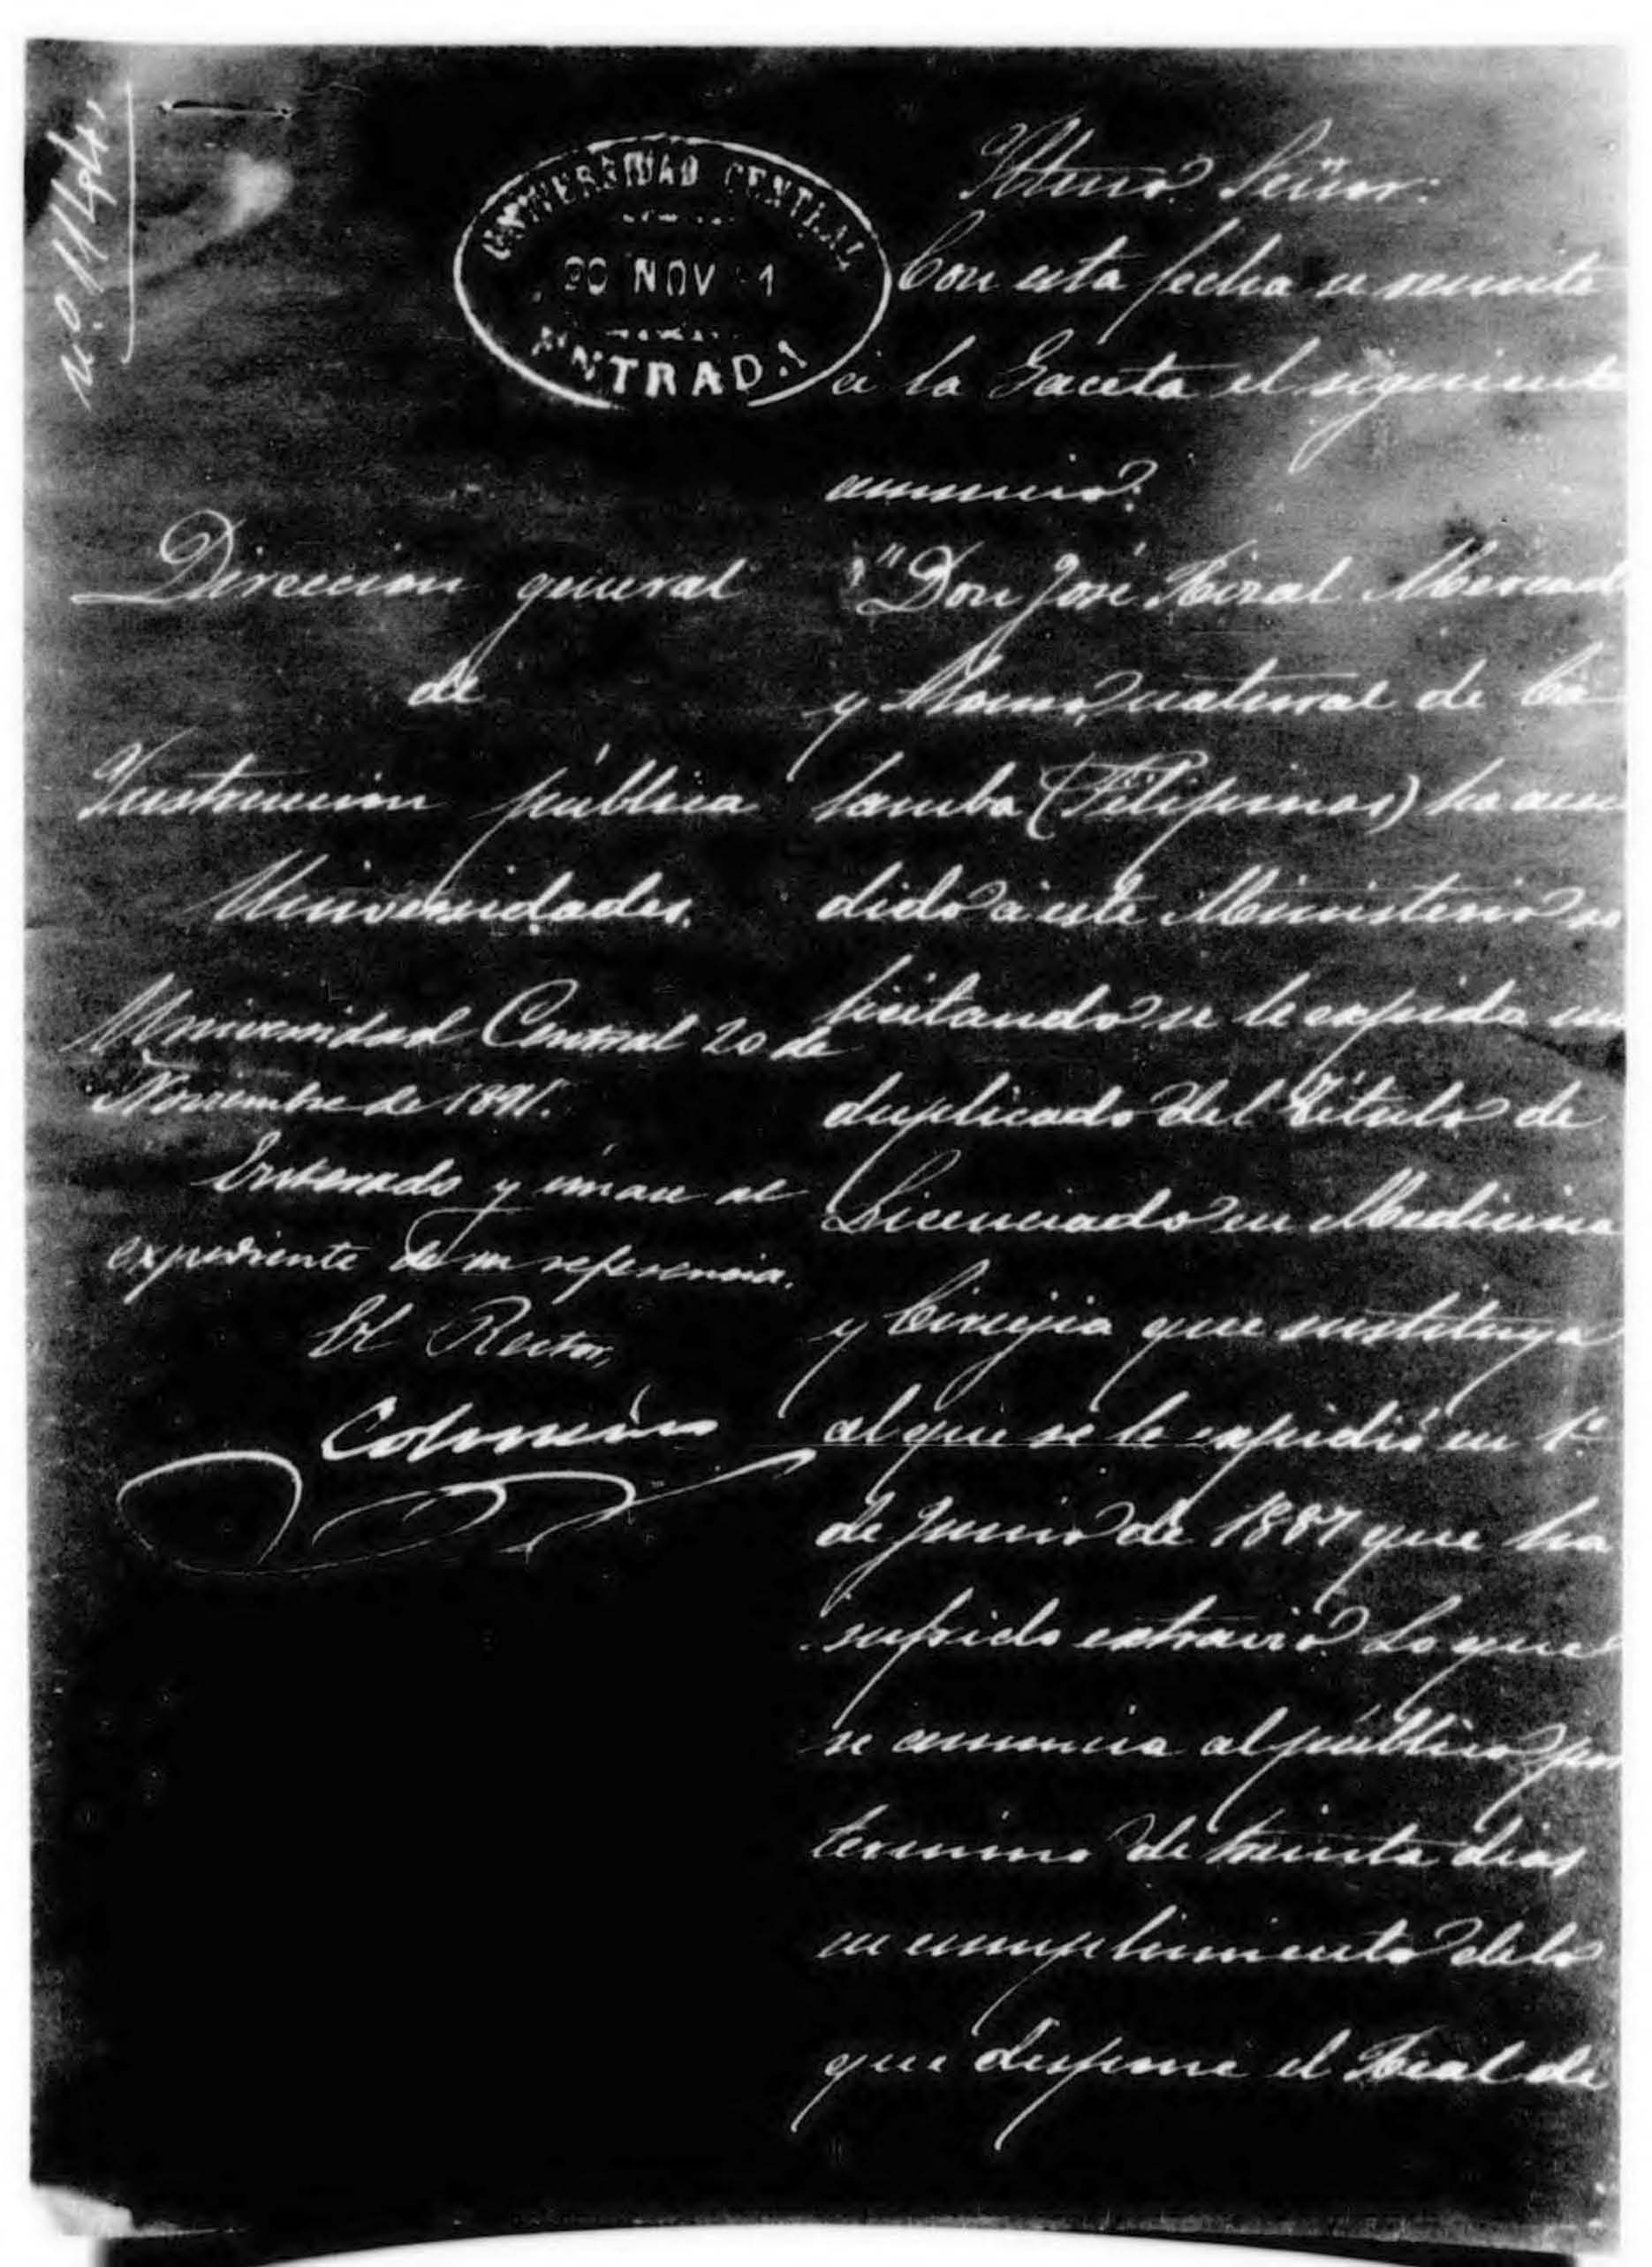 UNIVERSIDAD CENTRAL
20 NOV 1
ENTRADA
Dirección general
de
Instrucción pública
Universidades.
Universidad Central 20 de
Noviembre de 1891.
Enterado y únase al
expediente de su referencia.
El Rector,
Colmeiro
Iltmo. Señor:
Con esta fecha se remite
á la Gaceta el siguiente
anuncio:
"Don José Rizal Mercad
y Alonso, natural de Ca
lamba (Filipinas) ha acu
dido á este Ministerio so
licitando se le expida un
duplicado del Título de
Licenciado en Medicina
y Cirujía que sustituya
al que se le expidió en 1º
de Junio de 1887 que ha
sufrido extravío. Lo que
se anuncia al público por
término de treinta días
en cumplimiento de lo
que dispone el Real de